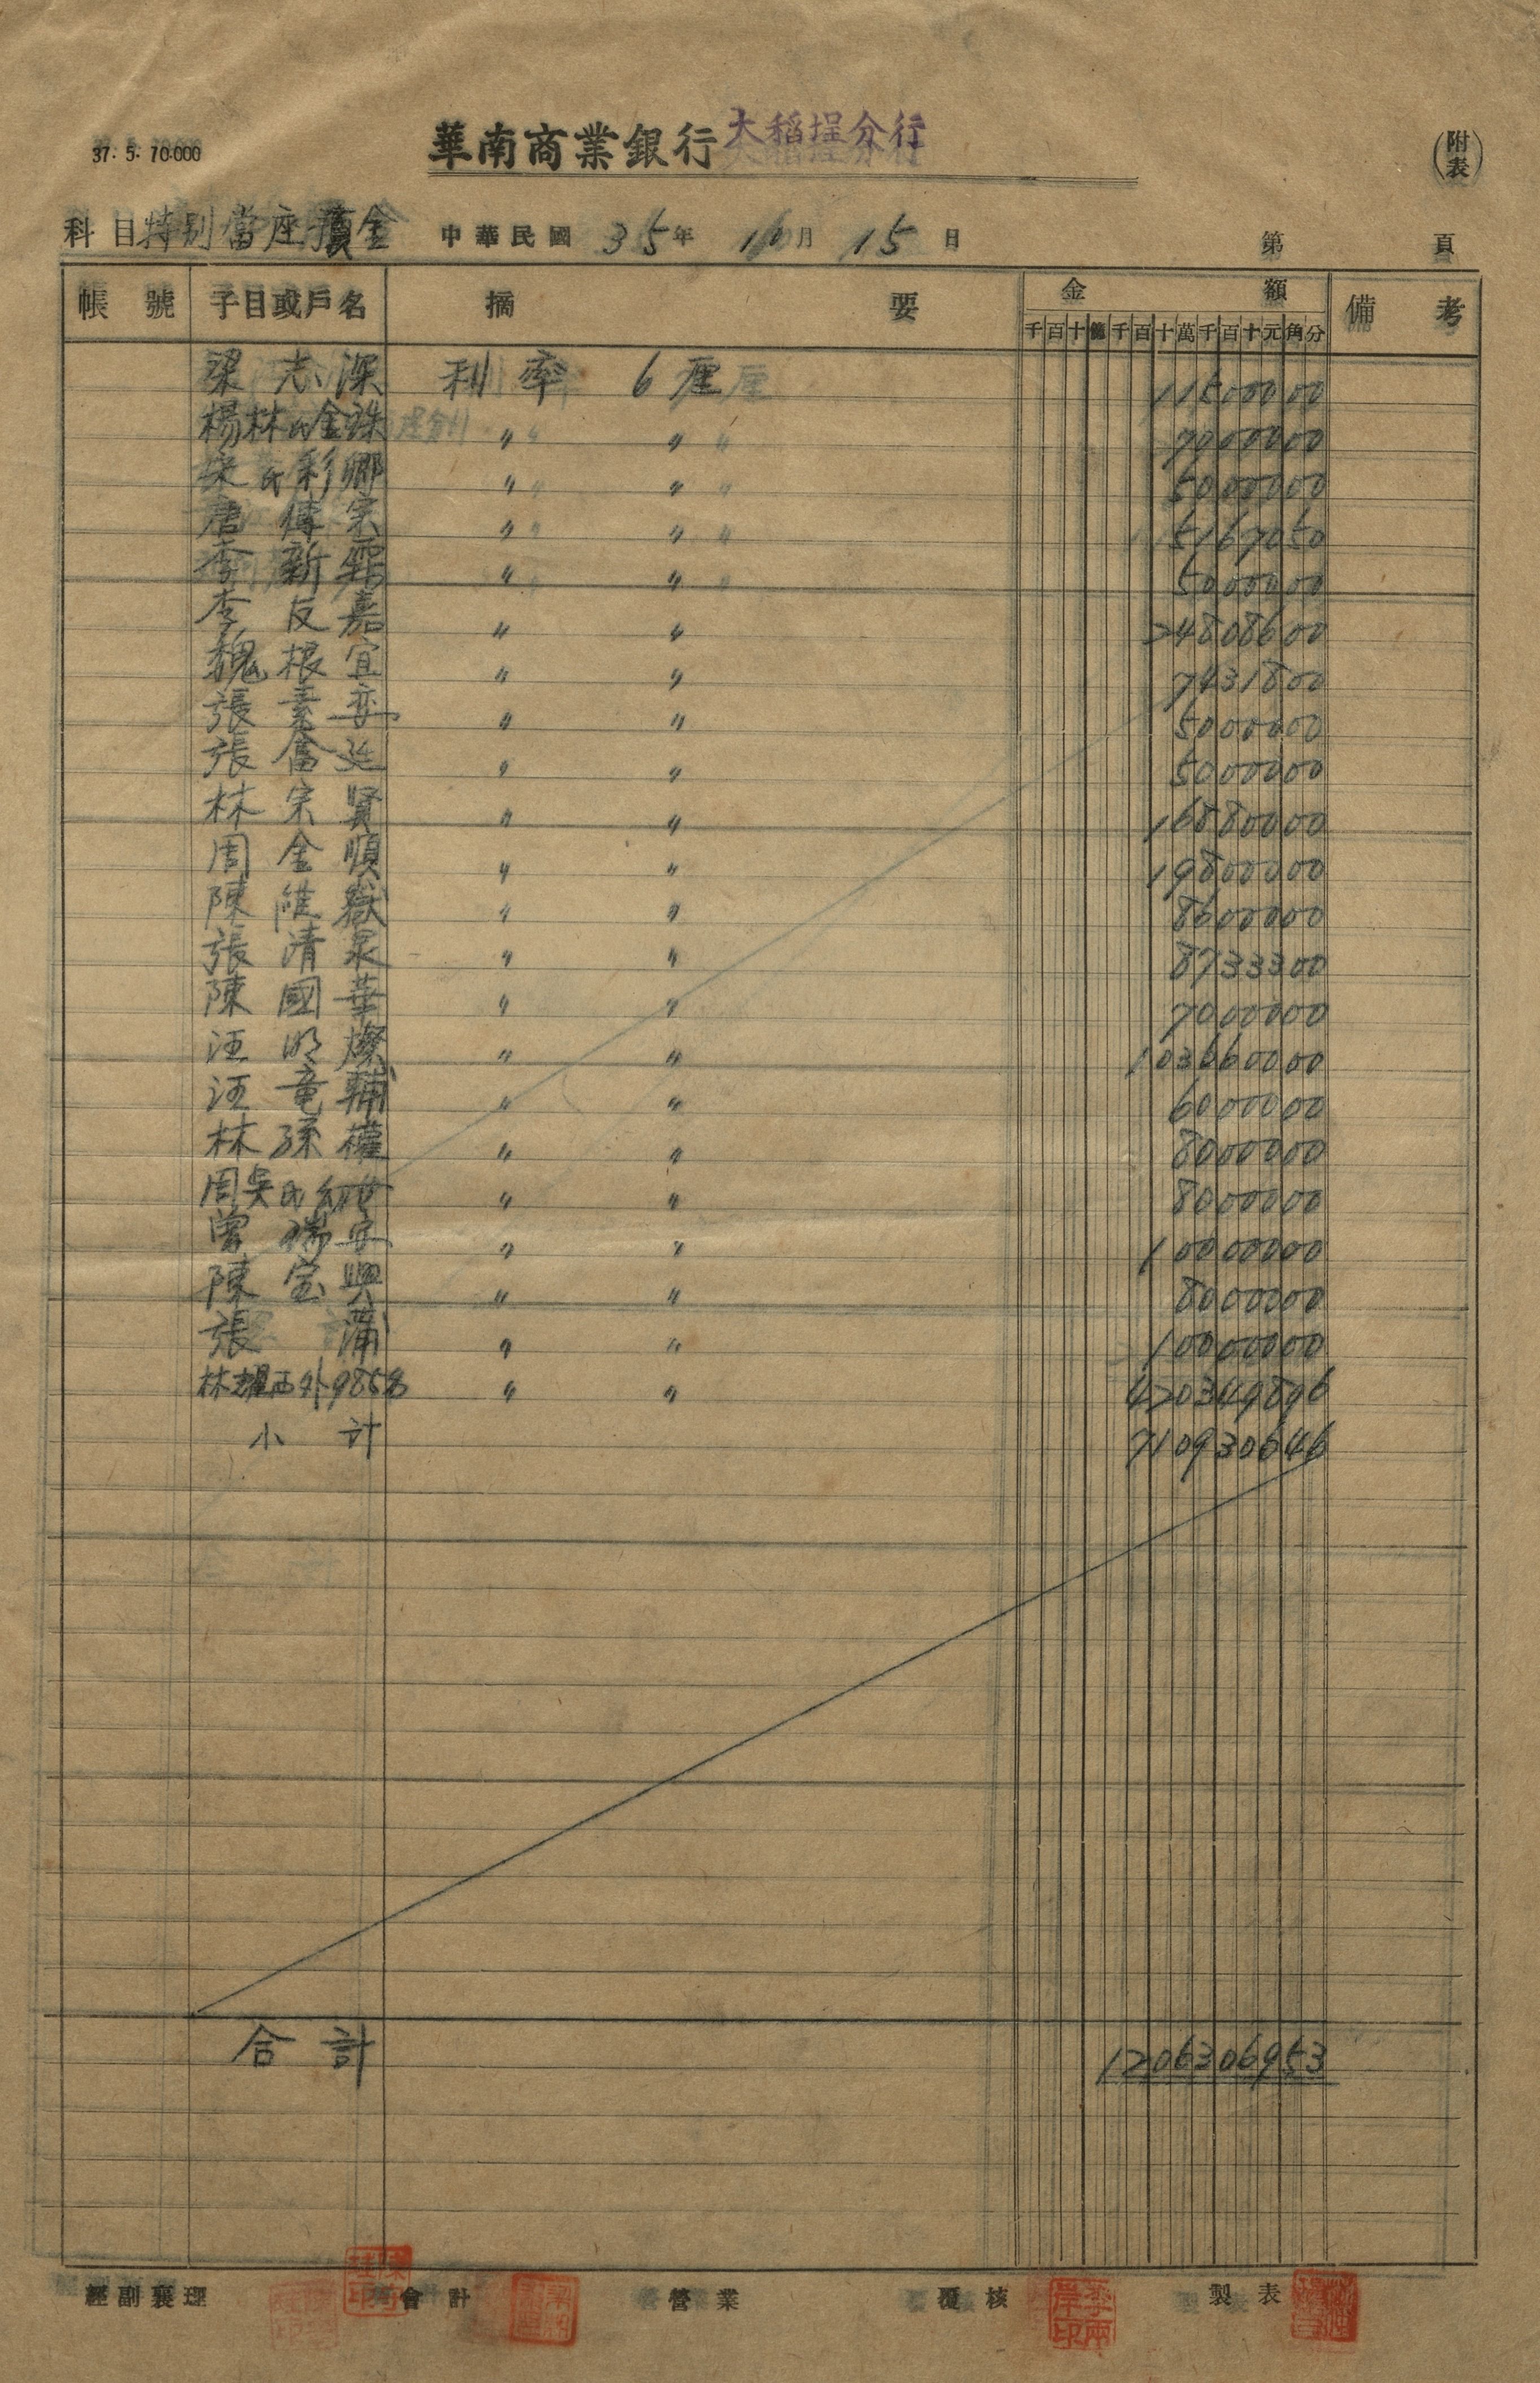 37. 5. 70.000
華南商業銀行 大稻埕分行
(附表)
科目 特別當座預金 中華民國 35年 10月 15日 第 頁
帳號 子目或戶名 摘要 金額 備考
千百十億千百十萬千百十元角分
梁志深 利率 6厘 11500000
楊林氏金珠 〃 〃 7000000
氏彩卿 〃 〃 5000000
唐傳宗 〃 〃 5167050
李新霖 〃 〃 5000000
李友嘉 〃 〃 24808600
魏根宜 〃 〃 7431800
張素 〃 〃 5000000
張富廷 〃 〃 5000000
林宗賢 〃 〃 16880000
周金順 〃 〃 19800000
陳維嶽 〃 〃 8600000
張清泉 〃 〃 8733300
陳國華 〃 〃 7000000
汪明燦 〃 〃 103660000
汪竜輔 〃 〃 6000000
林孫權 〃 〃 8000000
周吳氏幼 〃 〃 8000000
曾瑞安 〃 〃 10000000
陳宝興 〃 〃 8000000
張蒲 〃 〃 10000000
林耀西外985名 〃 〃 420349896
小計 710930646
合計 1206306953
經副襄理 會計 營業 覆核 製表